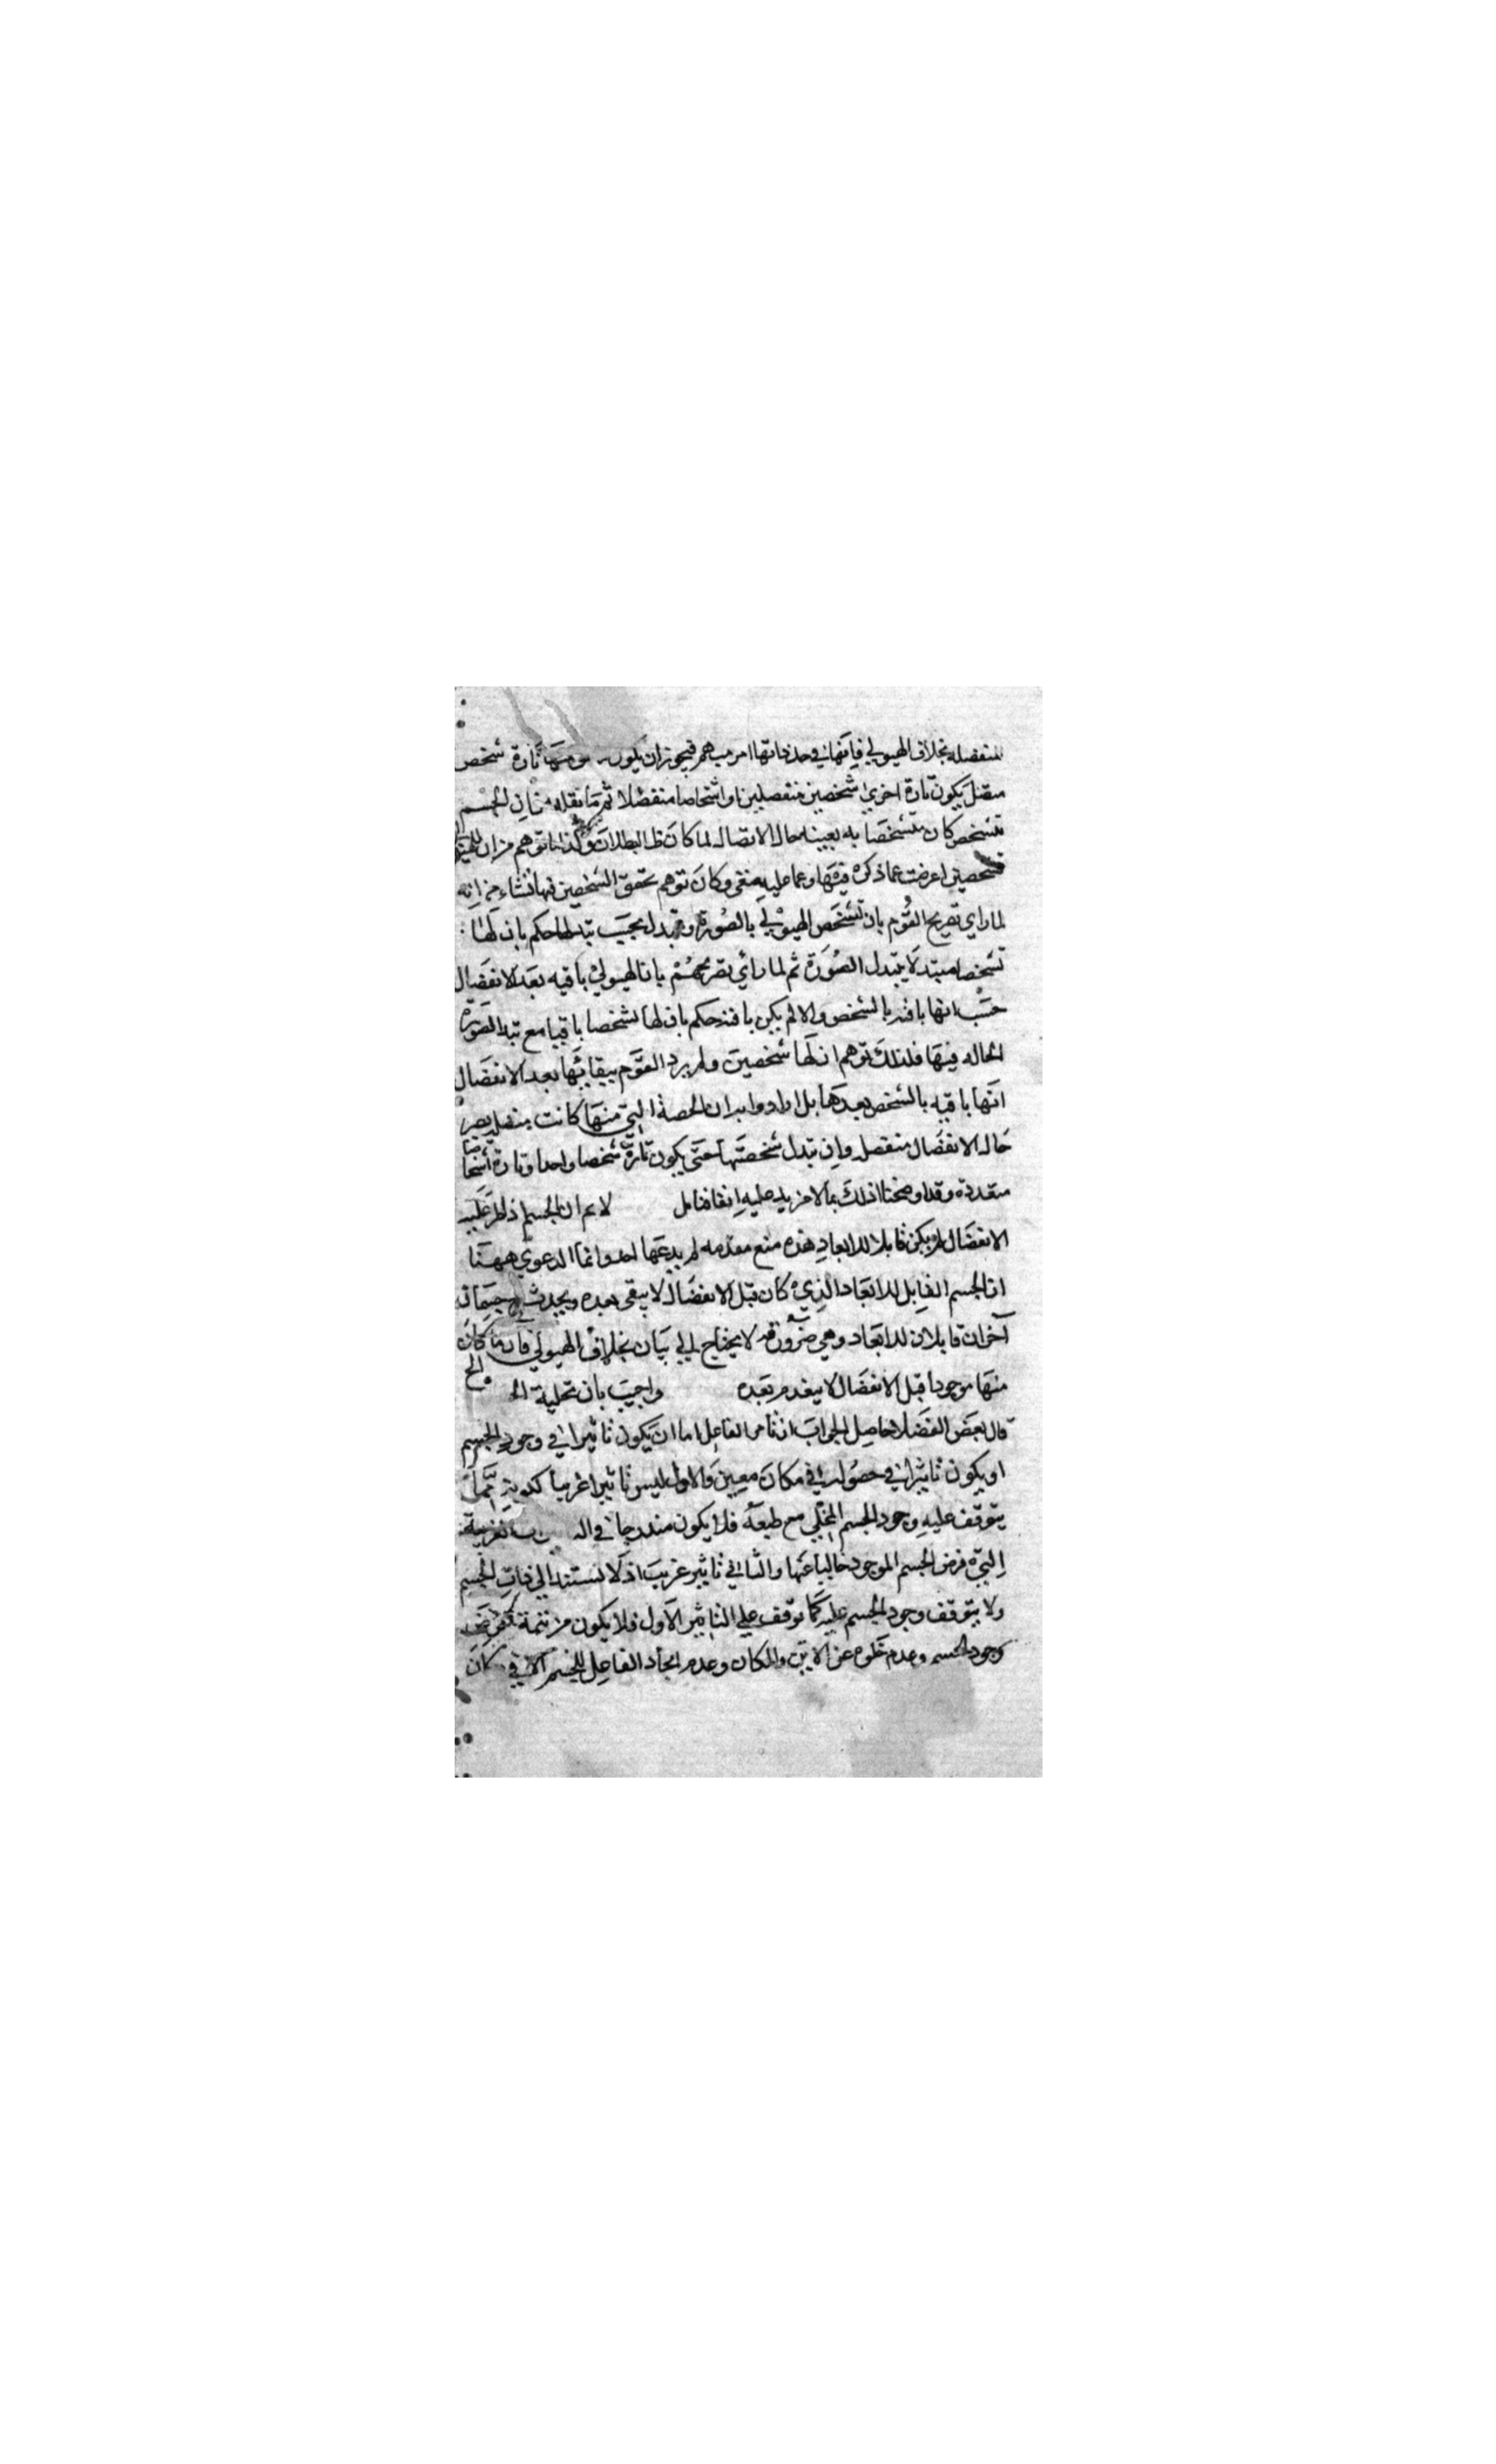 المنفصله بخلاف الهيولي فانها في حد ذاتها امر مبهم فيجوز ان يكون تارة شخص
متصل يكون تارة اخري شخصين منفصلين او اشخاصا منفصلا ثم ما نقله من ان الجسم
تشخص كان متشخصا به بعينه حال الاتصال لما كان ظ البطلان وكذا ما توهم من ان
شخصين اعرضت عما ذكره فيها وعما عليه مبني وكان توهم تحقق الشخصين فيها نشاء من انه
لما راي تصريح القوم بان تشخص الهيولي بالصورة وتبدل بحسب تبدلها حكم بان لها
تشخصا مبتدلا بتبدل الصورة ثم لما راي تصريحهم بان الهيولي باقيه بعد الانفصال
حسب انها باقيه بالشخص والا لم يكن باقيه حكم بان لها تشخصا باقيا مع تبدل الصورة
الحاله فيها فلذلك توهم ان لها شخصين ولم يرد القوم ببقائها بعد الانفصال
انها باقيه بالشخص بعدها بل ارادوا به ان الحصة التي منها كانت متصله يصير
حاله الانفصال منفصله وان تبدل شخصتها حتي يكون تارة شخصا واحدا وتارة اشخاصا
متعددة وقد اوضحنا ذلك بما لا مزيد عليه انفا فتامل لا نم ان الجسم اذا طر عليه
الانفصال لم يكن قابلا للابعاد هذه منع مقدمه لم يدعها احد وانما الدعوي ههنا
ان الجسم القابل للابعاد الذي كان قبل الانفصال لا يبقي بعده ويحدث جسمان
آخران قابلان للابعاد وهي ضرورية لا يحتاج الي بيان بخلاف الهيولي فان ما كان
منها موجودا قبل الانفصال لا ينعدم بعده واجيب بان تخلية الخ
قال بعض الفضلا حاصل الجواب ان تاثير الفاعل اما ان يكون تاثيرا في وجود الجسم
او يكون تاثيرا في حصوله في مكان معين والاول ليس تاثيرا غريبا لكونه مما
يتوقف عليه وجود الجسم المخلي مع طبعه فلا يكون مندرجا في الغريبة
التي فرض الجسم الموجود خاليا عنها والثاني تاثير غريب اذ لا يستند الي ذات الجسم
ولا يتوقف وجود الجسم عليه كما توقف علي التاثير الاول فلا يكون من تتمة فرض
وجود الجسم وعدم خلوه عن الاين والمكان وعدم ايجاد الفاعل للجسم الا في مكان